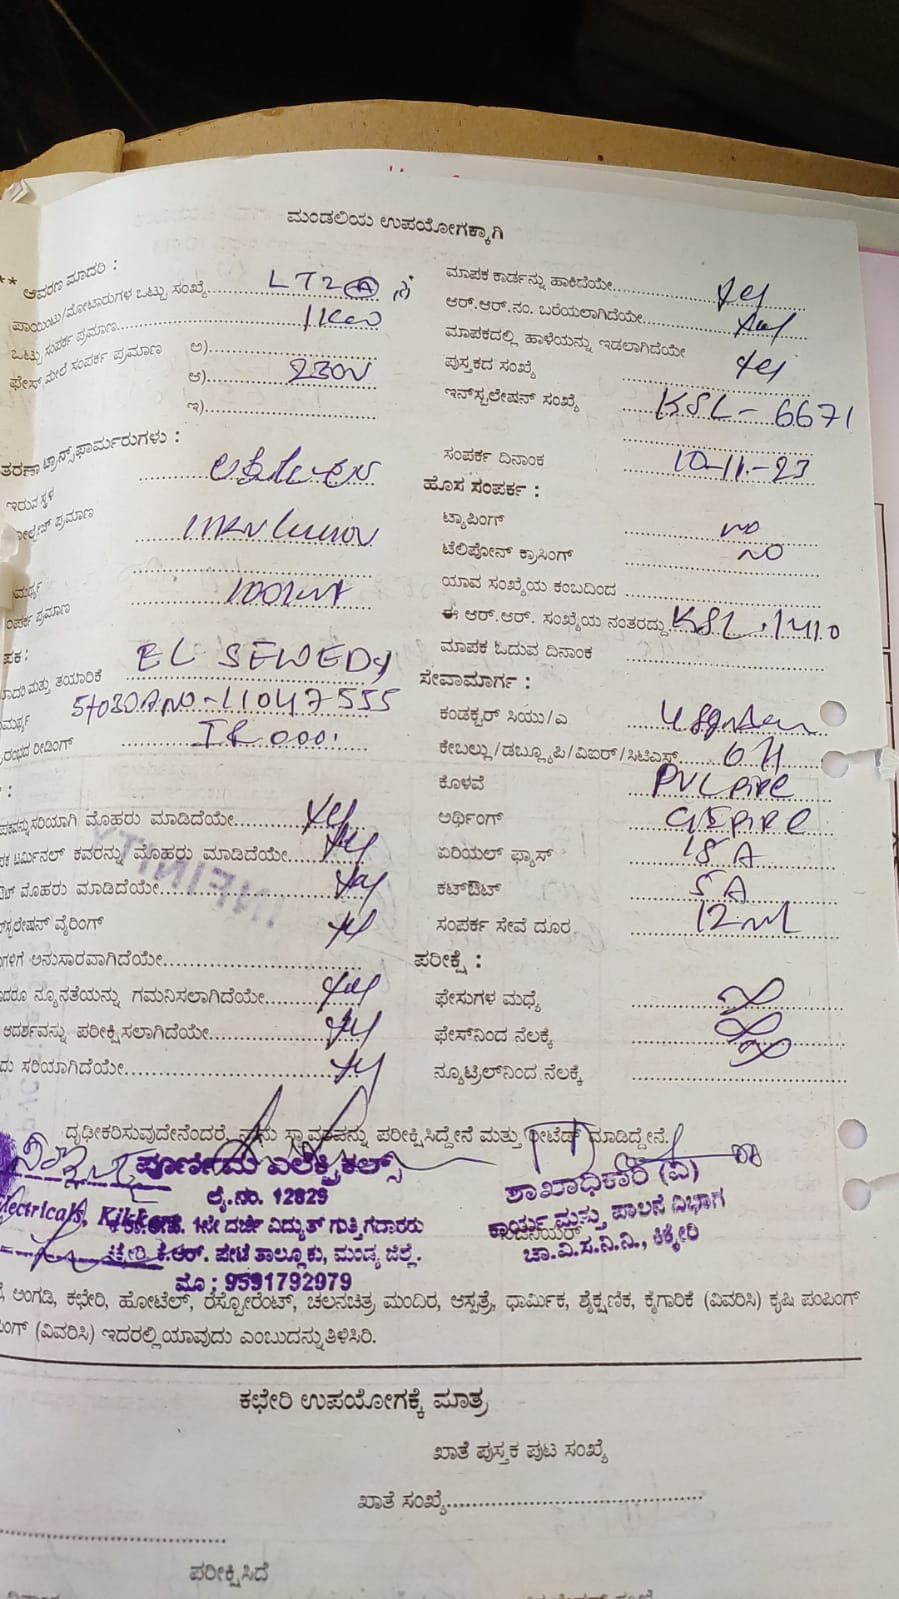 ಮಂಡಲಿಯ ಉಪಯೋಗಕ್ಕಾಗಿ
** ಆವರಣ ಮಾದರಿ :
ಪಾಯಿಂಟು/ಮೋಟಾರುಗಳ ಒಟ್ಟು ಸಂಖ್ಯೆ LT2 A
ಒಟ್ಟು ಸಂಪರ್ಕ ಪ್ರಮಾಣ 1KW
ಫೇಸ್ ಮೇಲೆ ಸಂಪರ್ಕ ಪ್ರಮಾಣ ಅ)
ಆ) 230V
ಇ)
ತರಣಾ ಟ್ರಾನ್ಸ್‌ಫಾರ್ಮರುಗಳು :
ಇರುವ ಸ್ಥಳ
ಪ್ರಮಾಣ
100KVA
ಪ್ರಮಾಣ
EL SEWEDY
ಮತ್ತು ತಯಾರಿಕೆ
5-30A NO-11047555
ರೀಡಿಂಗ್ IR 0001
ಸರಿಯಾಗಿ ಮೊಹರು ಮಾಡಿದೆಯೇ yes
ಟರ್ಮಿನಲ್ ಕವರನ್ನು ಮೊಹರು ಮಾಡಿದೆಯೇ yes
ಮೊಹರು ಮಾಡಿದೆಯೇ yes
ವೈರಿಂಗ್ yes
ಅನುಸಾರವಾಗಿದೆಯೇ
ನ್ಯೂನತೆಯನ್ನು ಗಮನಿಸಲಾಗಿದೆಯೇ yes
ಆದರ್ಶವನ್ನು ಪರೀಕ್ಷಿಸಲಾಗಿದೆಯೇ yes
ಸರಿಯಾಗಿದೆಯೇ yes
ಮಾಪಕ ಕಾರ್ಡನ್ನು ಹಾಕಿದೆಯೇ yes
ಆರ್.ಆರ್.ನಂ. ಬರೆಯಲಾಗಿದೆಯೇ yes
ಮಾಪಕದಲ್ಲಿ ಹಾಳೆಯನ್ನು ಇಡಲಾಗಿದೆಯೇ yes
ಪುಸ್ತಕದ ಸಂಖ್ಯೆ
ಇನ್‌ಸ್ಟಲೇಷನ್ ಸಂಖ್ಯೆ KSL-6671
ಸಂಪರ್ಕ ದಿನಾಂಕ 10-11-23
ಹೊಸ ಸಂಪರ್ಕ :
ಟ್ಯಾಪಿಂಗ್ no
ಟೆಲಿಪೋನ್ ಕ್ರಾಸಿಂಗ್ no
ಯಾವ ಸಂಖ್ಯೆಯ ಕಂಬದಿಂದ
ಈ ಆರ್.ಆರ್. ಸಂಖ್ಯೆಯ ನಂತರದ್ದು KSL.1410
ಮಾಪಕ ಓದುವ ದಿನಾಂಕ
ಸೇವಾಮಾರ್ಗ :
ಕಂಡಕ್ಟರ್ ಸಿಯು/ಎ
ಕೇಬಲ್ಲು/ಡಬ್ಲ್ಯೂಪಿ/ವಿಐರ್/ಸಿಟಿಎಸ್ OH
ಕೊಳವೆ PVC PIPE
ಅರ್ಥಿಂಗ್ GI PIPE
ಏರಿಯಲ್ ಫ್ಯೂಸ್ 15 A
ಕಟ್‌ಔಟ್ 5 A
ಸಂಪರ್ಕ ಸೇವೆ ದೂರ 12 M
ಪರೀಕ್ಷೆ :
ಫೇಸುಗಳ ಮಧ್ಯೆ ∞
ಫೇಸ್‌ನಿಂದ ನೆಲಕ್ಕೆ ∞
ನ್ಯೂಟ್ರಿಲ್‌ನಿಂದ ನೆಲಕ್ಕೆ ∞
ದೃಢೀಕರಿಸುವುದೇನೆಂದರೆ, ನಾನು ಸ್ಥಾವರವನ್ನು ಪರೀಕ್ಷಿಸಿದ್ದೇನೆ ಮತ್ತು ರೀಟೆಡ್ ಮಾಡಿದ್ದೇನೆ.
ಪೂರ್ಣಿಮ ಎಲೆಕ್ಟ್ರಿಕಲ್ಸ್
ಲೈ.ನಂ. 12829
1ನೇ ದರ್ಜೆ ವಿದ್ಯುತ್ ಗುತ್ತಿಗೆದಾರರು
ಕಿಕ್ಕೇರಿ ಕೆ.ಆರ್. ಪೇಟೆ ತಾಲ್ಲೂಕು, ಮಂಡ್ಯ ಜಿಲ್ಲೆ.
ಮೊ : 9591792979
ಶಾಖಾಧಿಕಾರಿ (ವಿ)
ಕಾರ್ಯ ಮತ್ತು ಪಾಲನೆ ವಿಭಾಗ
ಚಾ.ವಿ.ಸ.ನಿ.ನಿ., ಕಿಕ್ಕೇರಿ
ಅಂಗಡಿ, ಕಛೇರಿ, ಹೋಟೆಲ್, ರೆಸ್ಟೋರೆಂಟ್, ಚಲನಚಿತ್ರ ಮಂದಿರ, ಆಸ್ಪತ್ರೆ, ಧಾರ್ಮಿಕ, ಶೈಕ್ಷಣಿಕ, ಕೈಗಾರಿಕೆ (ವಿವರಿಸಿ) ಕೃಷಿ ಪಂಪಿಂಗ್
(ವಿವರಿಸಿ) ಇದರಲ್ಲಿ ಯಾವುದು ಎಂಬುದನ್ನು ತಿಳಿಸಿರಿ.
ಕಛೇರಿ ಉಪಯೋಗಕ್ಕೆ ಮಾತ್ರ
ಖಾತೆ ಪುಸ್ತಕ ಪುಟ ಸಂಖ್ಯೆ
ಖಾತೆ ಸಂಖ್ಯೆ
ಪರೀಕ್ಷಿಸಿದೆ